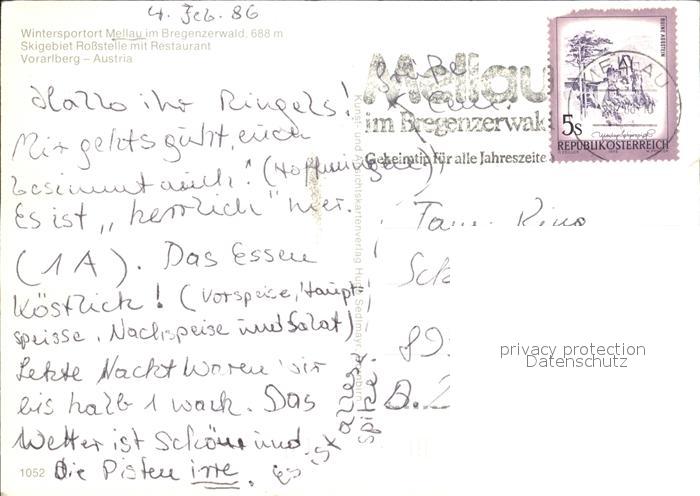 4. Feb. 86
Wintersportort Mellau im Bregenzerwald, 688 m
Skigebiet Roßstelle mit Restaurant
Vorarlberg – Austria
Hallo ihr Ringels!
Mir gehts guht, euch
bestimmt auch! (Hoffnungen)
Es ist „herrlich" hier.
(1A). Das Essen
köstlich! (Vorspeise, Haupt-
speisse, Nachspeise und Salat)
Letzte Nacht Waren wir
bis halb 1 wach. Das
Wetter ist Schön und
Die Pisten irre.
Es ist alles
spitze.
1052
Grüße
Mellau
im Bregenzerwald
Geheimtip für alle Jahreszeiten
MELLAU
RUINE AGGSTEIN
5s
REPUBLIK ÖSTERREICH
Kunst- und Ansichtskartenverlag Hugo Sedlmayr
privacy protection
Datenschutz